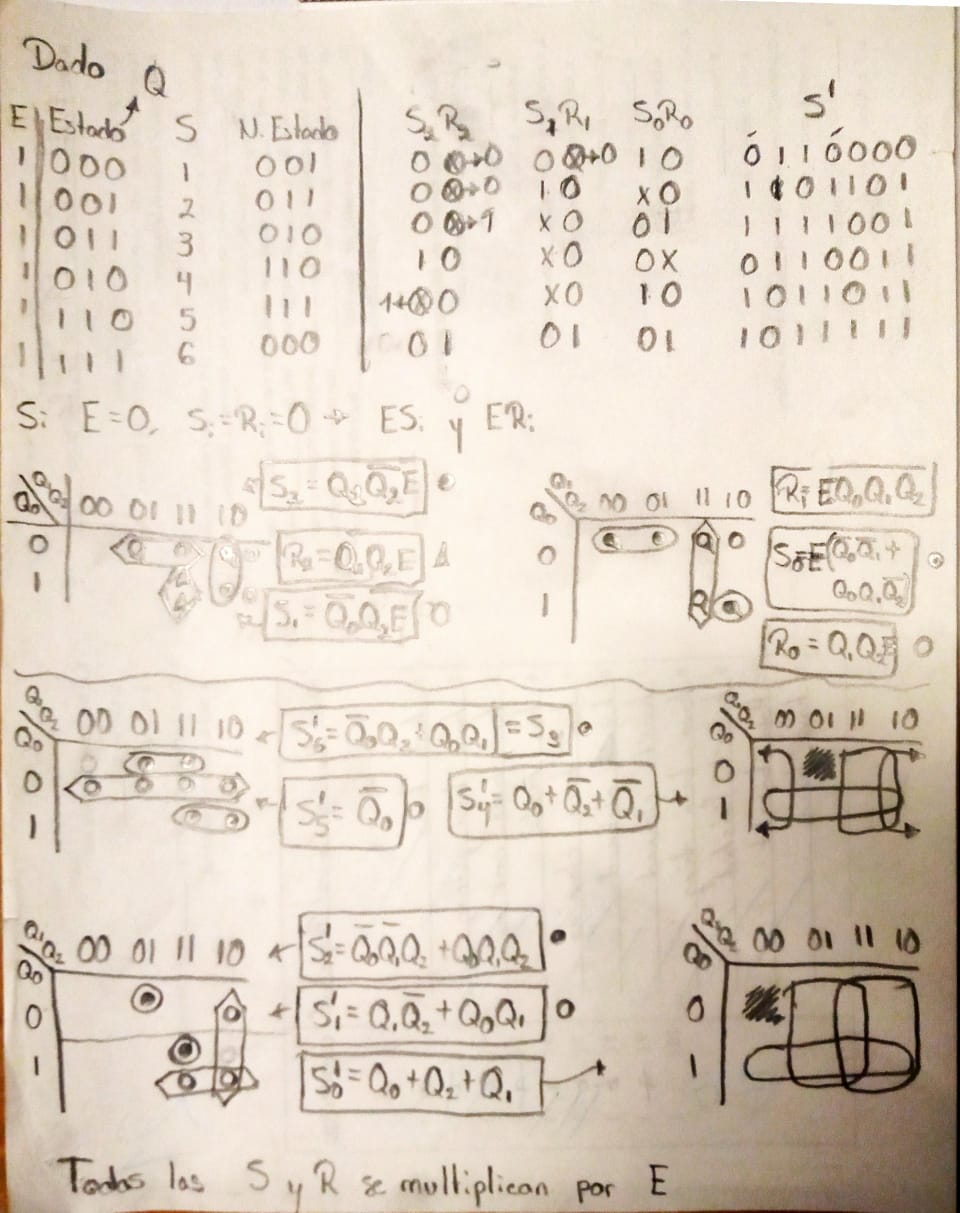 Dado Q
E Estado S N. Estado S₂R₂ S₁R₁ S₀R₀ S'
1 000 1 001 0 ⊗→0 0 ⊗→0 10 0110000
1 001 2 011 0 ⊗→0 10 X0 1101101
1 011 3 010 0 ⊗→1 X0 01 1111001
1 010 4 110 10 X0 0X 0110011
1 110 5 111 1←⊗0 X0 10 1011011
1 111 6 000 01 01 01 1011111
Si E=0, Sᵢ=Rᵢ=0 → ESᵢ y ERᵢ
Q₁Q₂ Q₀ 00 01 11 10
0
1
S₂ = Q₁Q̅₂E
S₁ = Q̅₀Q̅₂E
Q₁Q₂ Q₀ 00 01 11 10
0
1
R₁=EQ₀Q₁Q̅₂
R₀ = Q₁Q₂E
Q₁Q₂ Q₀ 00 01 11 10
0
1
S'₆ = Q̅₀Q₂+Q₀Q₁ = S₃
S'₅ = Q̅₀
S'₄ = Q₀+Q̅₂+Q̅₁
Q₁Q₂ Q₀ 00 01 11 10
0
1
Q₁Q₂ Q₀ 00 01 11 10
0
1
S'₂ = Q̅₀Q̅₁Q₂ + Q₀Q₁Q₂
S'₁ = Q₁Q̅₂ + Q₀Q₁
S'₀ = Q₀+Q₂+Q₁
Q₁Q₂ Q₀ 00 01 11 10
0
1
Todas las S y R se multiplican por E